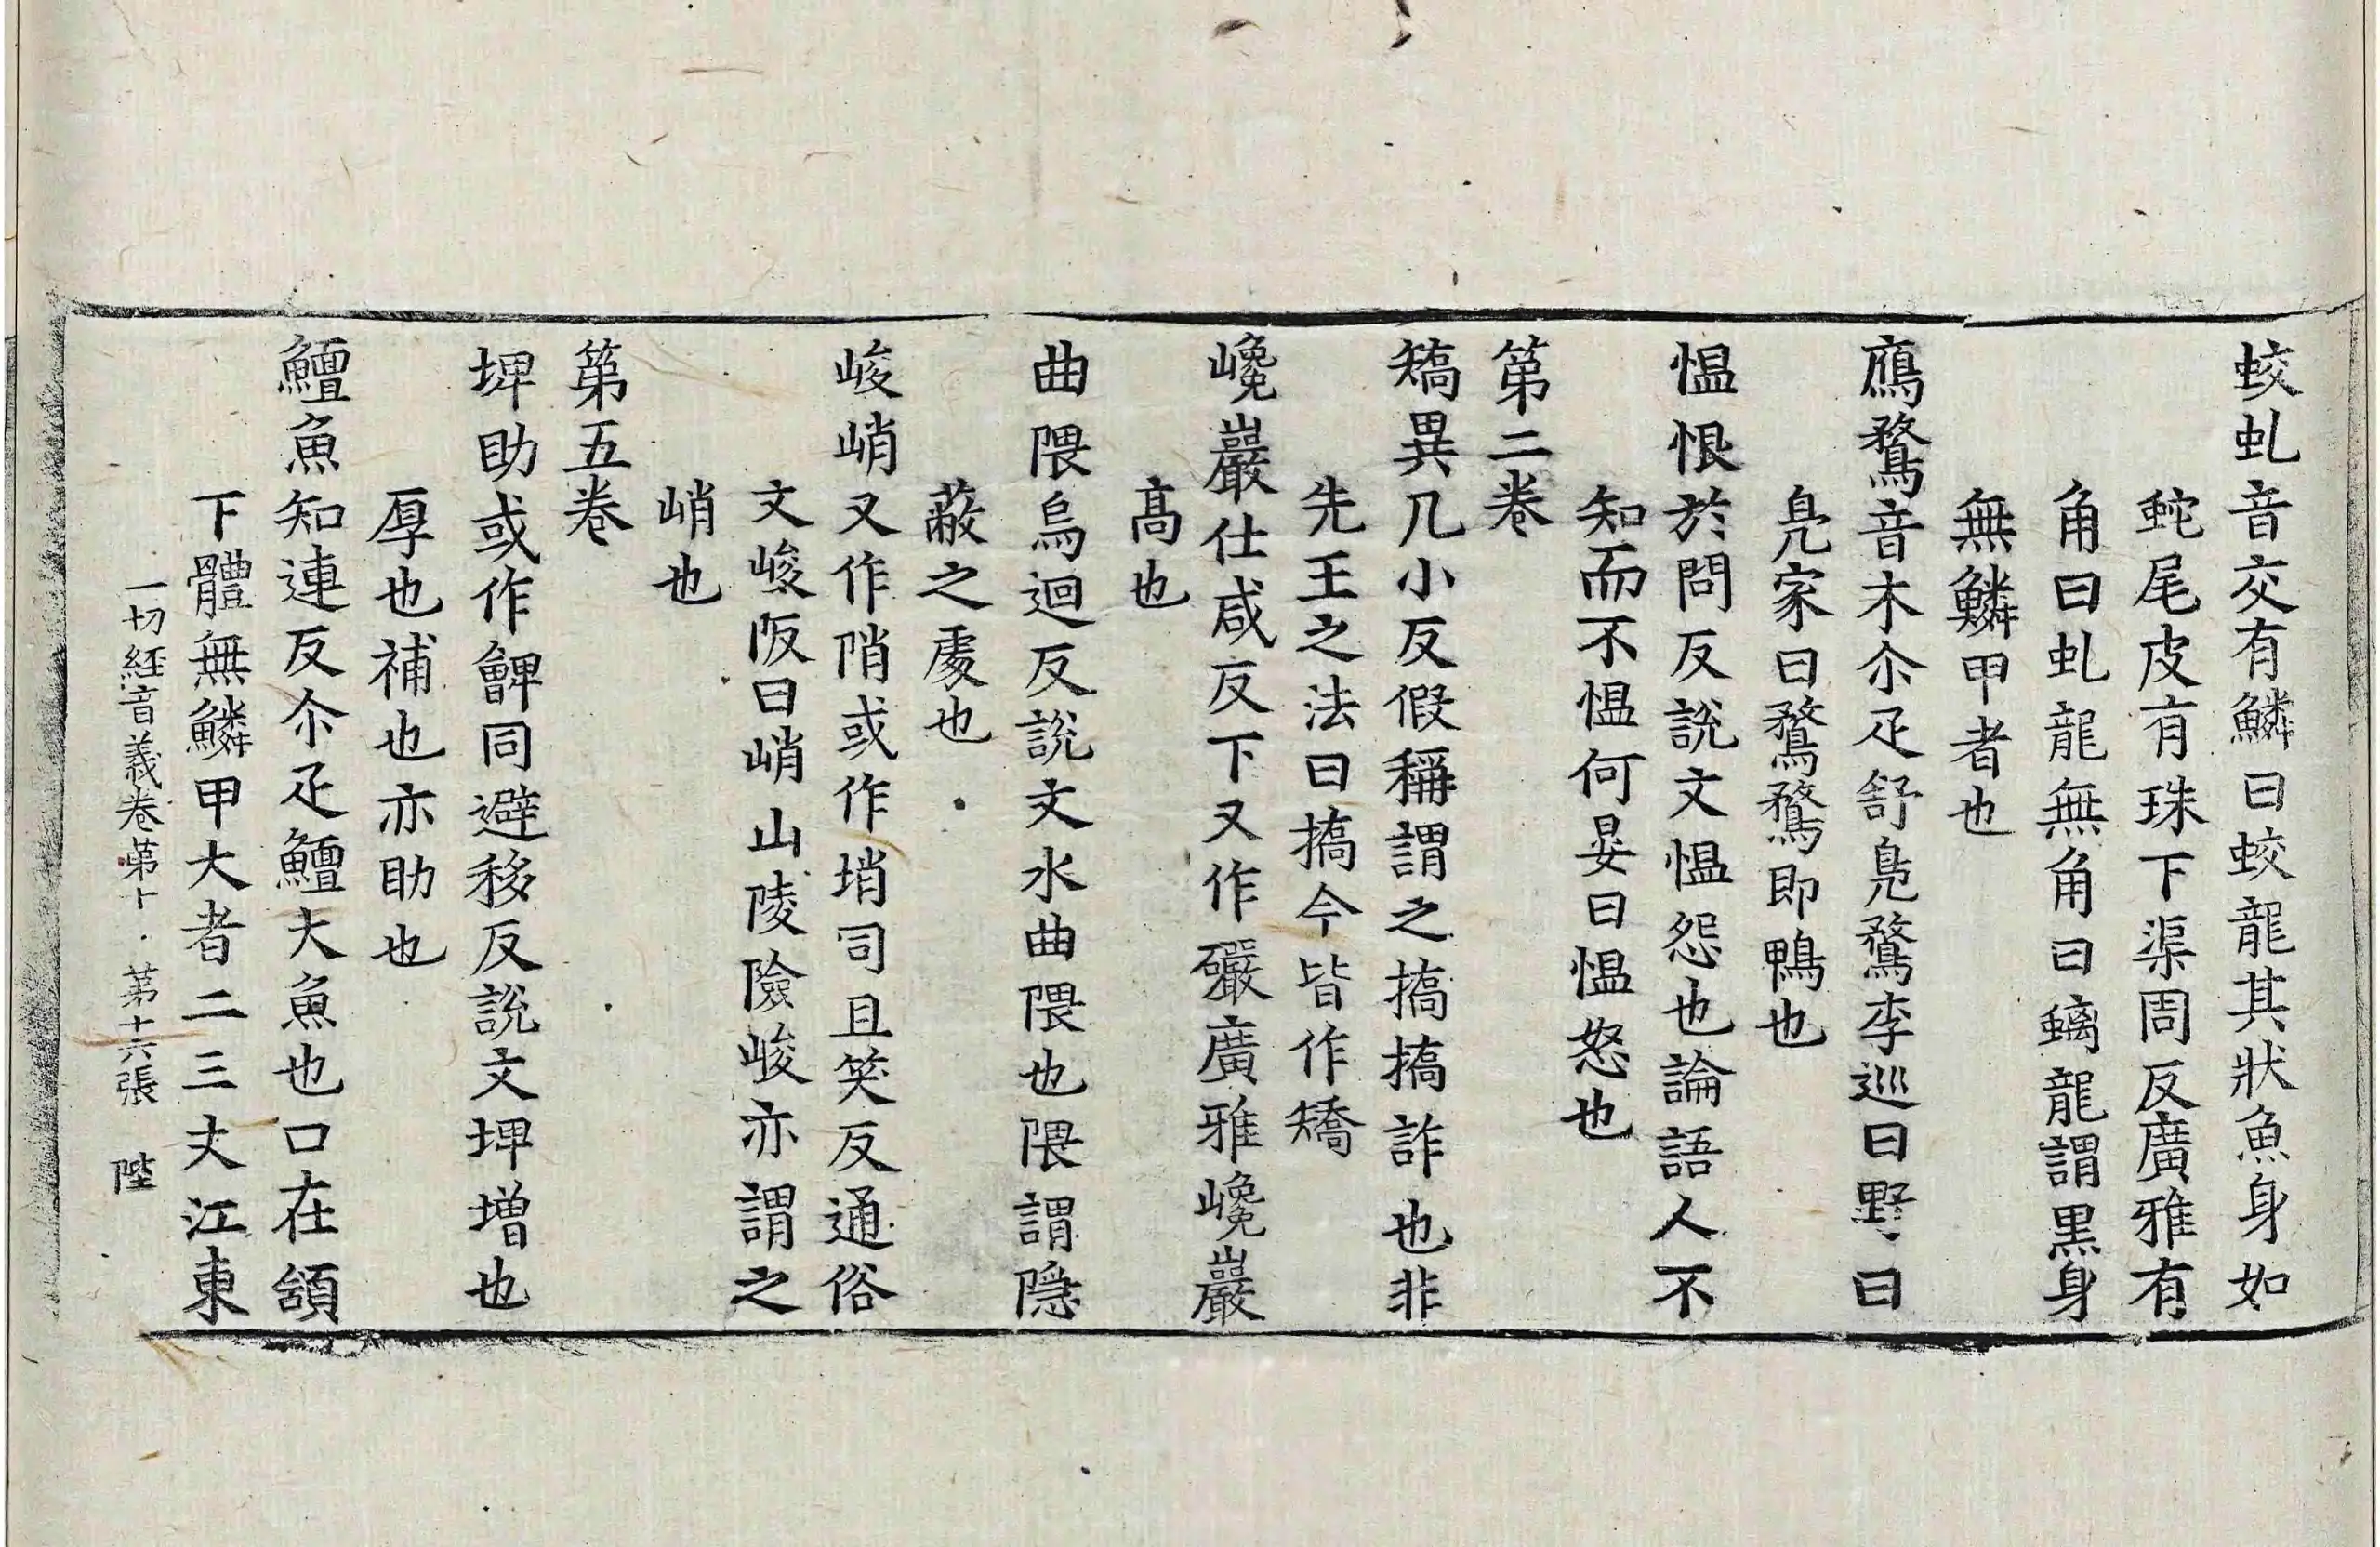 蛟虬音交有鱗曰蛟龍其狀魚身如
蛇尾皮有珠下渠周反廣雅有
角曰虬龍無角曰螭龍謂黒身
無鱗甲者也
鴈鶩音木尒疋舒鳬鶩李巡曰野曰
鳬家曰鶩鶩即鴨也
愠恨於問反說文愠怨也論語人不
知而不愠何晏曰愠怒也
第二卷
矯異几小反假稱謂之撟撟詐也非
先王之法曰撟今皆作矯
巉巖仕咸反下又作礹廣雅巉巖
髙也
曲隈烏迴反說文水曲隈也隈謂隠
蔽之處也
峻峭又作陗或作塙司且笑反通俗
文峻阪曰峭山陵險峻亦謂之
峭也
第五卷
埤助或作𩫫同避移反說文埤增也
厚也補也亦助也
鱣魚知連反尒疋鱣大魚也口在頷
下體無鱗甲大者二三丈江東
一切經音義卷第十 第十六張 陛